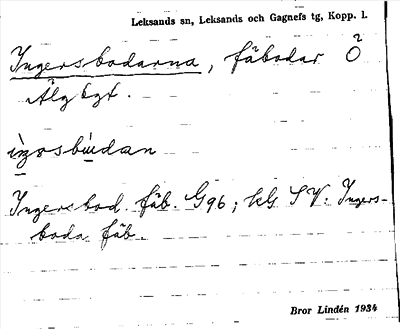 Leksands sn, Leksands och Gagnefs tg, Kopp. l.
Ingersbodarna, fäbodar Ö
2
Älg bgt.
Ingersbod. fäb. G96; kG SV. Ingers-
boda fäb.
Bror Lindén 1934